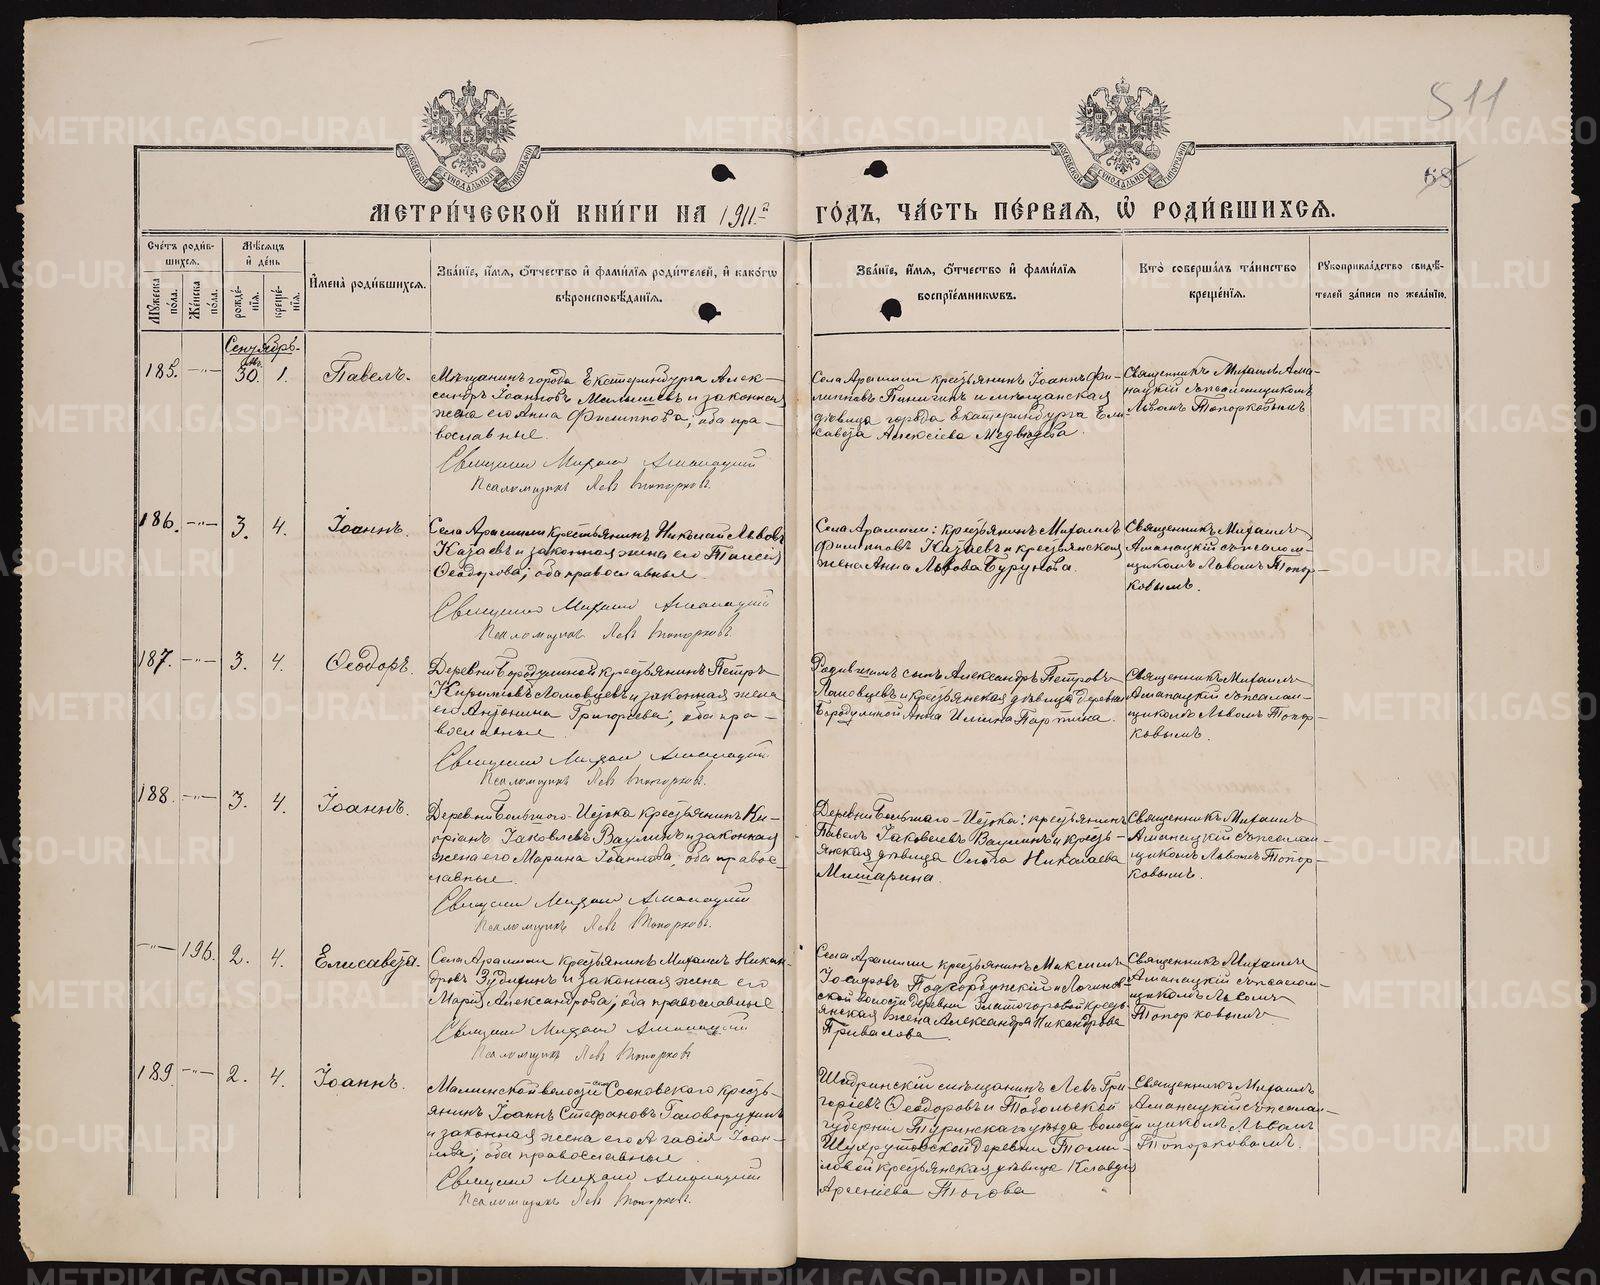 511
68
МЕТРИ́ЧЕСКОЙ КНИ́ГИ НА 1911й ГО́ДЪ, ЧА́СТЬ ПЕ́РВАЯ, Ѡ҆ РОДИ́ВШИХСѦ.
Сче́тъ роди́в-
шихсѧ.
Мꙋ́жеска по́ла.
Же́нска по́ла.
Мѣ́сѧцъ
и҆ де́нь
рожде́-
нїѧ.
креще́-
нїѧ.
И҆мена̀ роди́вшихсѧ.
Зва́нїе, и҆́мѧ, ѻ҆́тчество и҆ фами́лїѧ роди́телей, и҆ како́гѡ
вѣроисповѣ́данїѧ.
Зва́нїе, и҆́мѧ, ѻ҆́тчество и҆ фами́лїѧ
воспрїе́мникѡвъ.
Кто̀ соверша́лъ та́инство
креще́нїѧ.
Рꙋкоприкла́дство свидѣ́-
телей за́писи по жела́нїю.
Сентябрь.
185. 30. 1. Павелъ.
Мѣщанинъ города Екатеринбурга Алек-
сандръ Іоанновъ Малышевъ и законная
жена его Анна Филиппова, оба пра-
вославные.
Священникъ Михаилъ
Псаломщикъ Левъ Топорковъ.
Села Арамили крестьянинъ Іоаннъ Фи-
липповъ и мѣщанская
дѣвица города Екатеринбурга Ели-
савета Алексіева Медвѣдева.
Священникъ Михаилъ
съ псаломщикомъ
Львомъ Топорковымъ
186. 3. 4. Іоаннъ.
Села Арамили крестьянинъ Николай Львовъ
Казаевъ и законная жена его Таисія
Ѳеодорова; оба православные.
Священникъ Михаилъ
Псаломщикъ Левъ Топорковъ.
Села Арамили: крестьянинъ Михаилъ
Филипповъ Казаевъ и крестьянская
жена Анна Львова Бурунова.
Священникъ Михаилъ
съ псалом-
щикомъ Львомъ Топор-
ковымъ.
187. 3. 4. Ѳеодоръ.
Деревни Бородулиной крестьянинъ Петръ
Кирилловъ Ломовцевъ и законная жена
его Антонина Григорьева; оба пра-
вославные.
Священникъ Михаилъ
Псаломщикъ Левъ Топорковъ.
Родившимъ сынъ Александръ Петровъ
Ломовцевъ и крестьянская дѣвица деревни
Бородулиной Анна Ильина Партина.
Священникъ Михаилъ
съ псалом-
щикомъ Львомъ Топор-
ковымъ.
188. 3. 4. Іоаннъ.
Деревни Большого-Истока крестьянинъ Ки-
пріанъ Іаковлевъ Ваулинъ и законная
жена его Марина Іоаннова; оба право-
славные.
Священникъ Михаилъ
Псаломщикъ Левъ Топорковъ.
Деревни Большаго-Истока: крестьянинъ
Павелъ Іаковлевъ Ваулинъ и кресть-
янская дѣвица Ольга Николаева
Мишарина.
Священникъ Михаилъ
съ псалом-
щикомъ Львомъ Топор-
ковымъ.
196. 2. 4. Елисавета.
Села Арамили крестьянинъ Михаилъ Никан-
дровъ и законная жена его
Марія Александрова; оба православные.
Священникъ Михаилъ
Псаломщикъ Левъ Топорковъ
Села Арамили крестьянинъ Максимъ
Подгорбунскій и Логинов-
ской волости деревни кресть-
янская жена Александра Никандрова
Привалова.
Священникъ Михаилъ
съ псалом-
щикомъ Львомъ
Топорковымъ
189. 2. 4. Іоаннъ.
Маминской волости села Сосновскаго кресть-
янинъ Іоаннъ Стефановъ Головорухинъ
и законная жена его Агафія Іоан-
нова; оба православные.
Священникъ Михаилъ
Псаломщикъ Левъ Топорковъ.
Шадринскій мѣщанинъ Левъ Гри-
горіевъ Ѳеодоровъ и Тобольской
губерніи Туринскаго уѣзда волости
деревни
крестьянская дѣвица Клавдія
Арсеніева
Священникъ Михаилъ
съ псалом-
щикомъ Львомъ
Топорковымъ.
METRIKI.GASO-URAL.RU